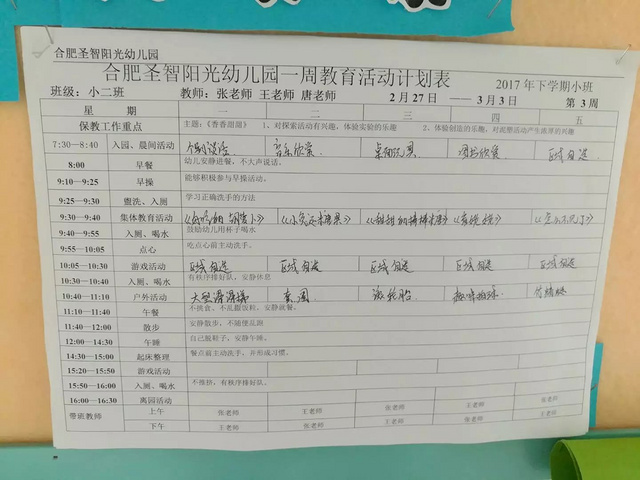 合肥圣智阳光幼儿园
合肥圣智阳光幼儿园一周教育活动计划表
2017年下学期小班
班级：小二班 教师：张老师 王老师 唐老师 2月27日 —— 3月3日 第3周
星 期 一 二 三 四 五
保教工作重点 主题：《香香甜甜》 1、对探索活动有兴趣，体验实验的乐趣 2、体验创造的乐趣，对泥塑活动产生浓厚的兴趣
7:30—8:40 入园、晨间活动 个别谈话 音乐欣赏 桌面玩具 图书欣赏 区域自选
8:00 早餐 幼儿安静进餐，不大声说话。
9:10—9:25 早操 能够积极参与早操活动。
9:25—9:30 盥洗、入厕 学习正确洗手的方法
9:30—9:40 集体教育活动
9:40—9:55 入厕、喝水 鼓励幼儿用杯子喝水
9:55—10:05 点心 吃点心前主动洗手。
10:05—10:30 游戏活动 区域自选 区域自选 区域自选 区域自选 区域自选
10:30—10:40 入厕、喝水 有秩序排好队，安静休息
10:40—11:10 户外活动 大型滑滑梯 滚轮胎
11:10—11:40 午餐 不挑食、不乱撒饭粒，安静就餐。
11:40—12:00 散步 安静散步，不随便乱跑
12:00—14:30 午睡 自己脱鞋子，安静午睡。
14:30—15:00 起床整理 餐点前主动洗手，并形成习惯。
15:20—15:50 游戏活动
15:50—16:00 入厕、喝水 不推挤，有秩序排好队。
16:00—16:30 离园活动
带班教师 上午 张老师 王老师 张老师 王老师 张老师
下午 王老师 张老师 王老师 张老师 王老师